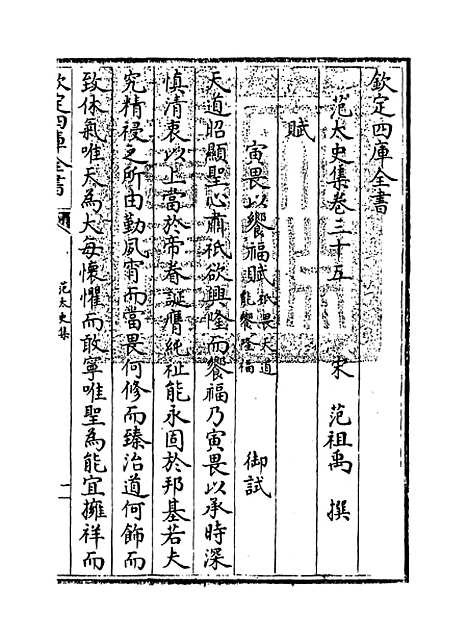 欽定四庫全書
范太史集卷三十五
宋 范祖禹 撰
賦
寅畏以饗福賦 祗畏天道能饗隆福 御試
天道昭顯聖心肅祇欲興隆而饗福乃寅畏以承時深
慎清衷以上當於帝眷誕膺純祉能永固於邦基若夫
究精祲之所由勤夙宵而當畏何修而臻治道何飾而
致休氣唯天為大每懷懼而敢寧唯聖為能宜擁祥而
欽定四庫全書
范太史集